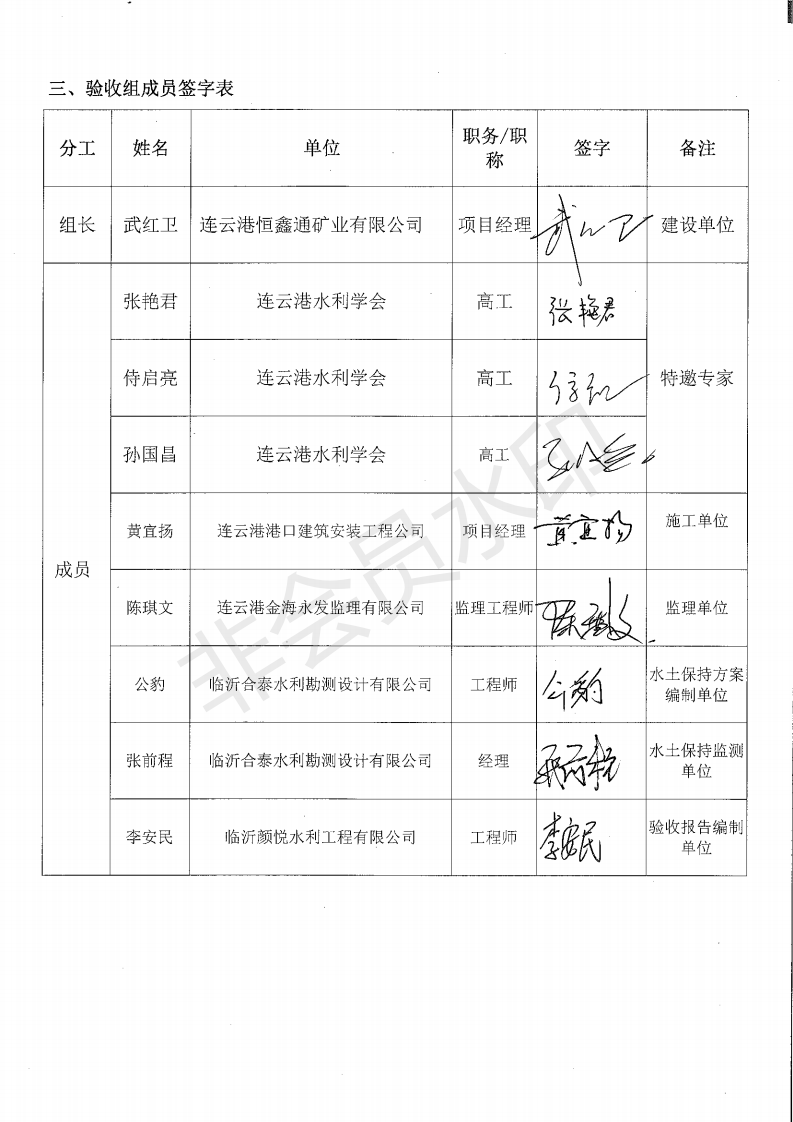 三、验收组成员签字表
分工 姓名 单位 职务/职称 签字 备注
组长 武红卫 连云港恒鑫通矿业有限公司 项目经理 武红卫 建设单位
成员
张艳君 连云港水利学会 高工 张艳君
侍启亮 连云港水利学会 高工 特邀专家
孙国昌 连云港水利学会 高工
黄宜扬 连云港港口建筑安装工程公司 项目经理 黄宜扬 施工单位
陈琪文 连云港金海永发监理有限公司 监理工程师 陈琪文 监理单位
公豹 临沂合泰水利勘测设计有限公司 工程师 公豹 水土保持方案
编制单位
张前程 临沂合泰水利勘测设计有限公司 经理 张前程 水土保持监测
单位
李安民 临沂颜悦水利工程有限公司 工程师 李安民 验收报告编制
单位
非会员水印